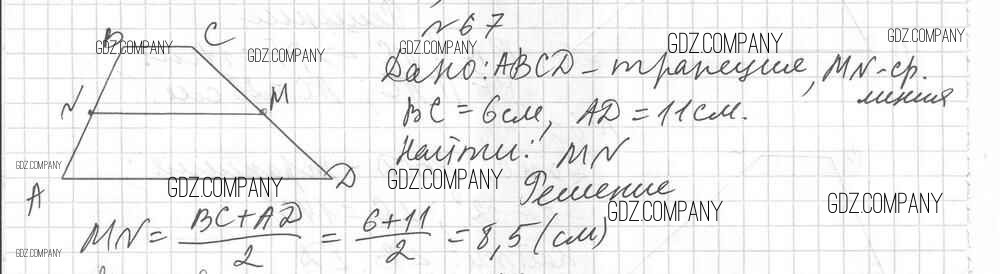 №67
Дано: ABCD - трапеция, MN - ср. линия
BC = 6см, AD = 11см.
Найти: MN
Решение
MN = (BC + AD)/2 = (6 + 11)/2 = 8,5 (см)
B
C
N
M
A
D
GDZ.COMPANY
GDZ.COMPANY
GDZ.COMPANY
GDZ.COMPANY
GDZ.COMPANY
GDZ.COMPANY
GDZ.COMPANY
GDZ.COMPANY
GDZ.COMPANY
GDZ.COMPANY
GDZ.COMPANY